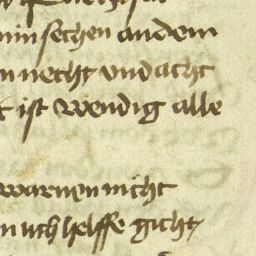 min sechen an dem
n necht vnd acht
t ist wendig alle
warnen nicht
n uch helffe gicht